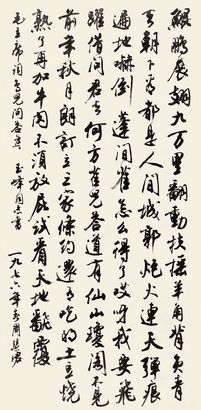 鲲鹏展翅九万里翻動扶摇羊角背負青
天朝下看都是人间城郭炮火連天弹痕
遍地嚇倒蓬间雀怎么得了哎呀我要飛
躍借问君去何方雀兒答道有仙山瓊阁不見
前年秋月朗訂了三家條约還有吃的土豆燒
熟了再加牛肉不須放屁試看天地翻覆
毛主席词鸟兒问答 玉峰同志書 一九七六年周慧珺